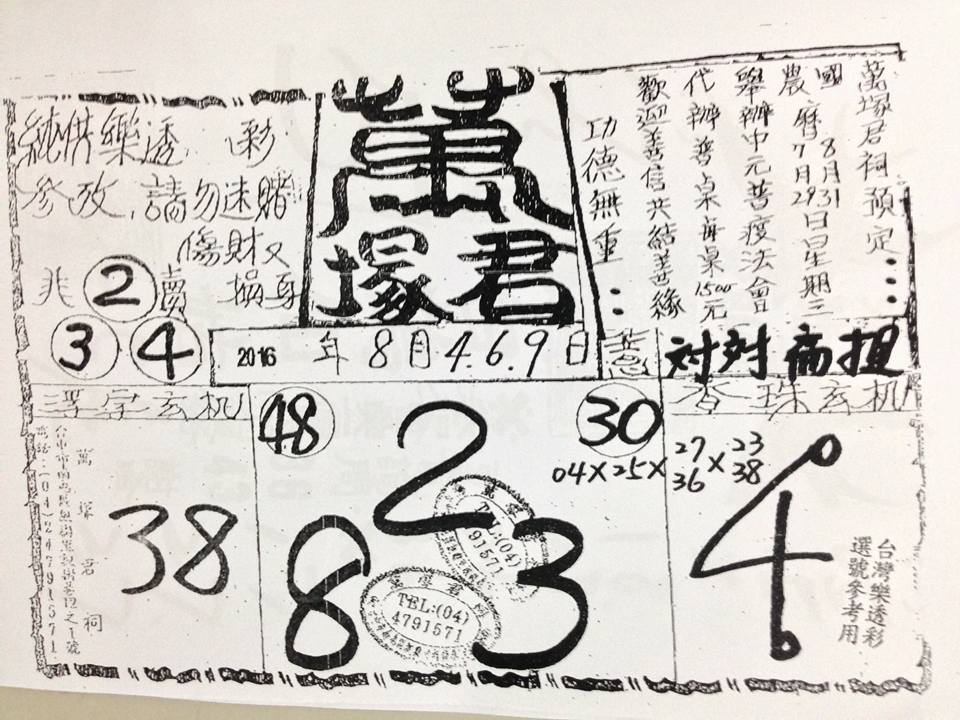 萬塚君祠預定
國 8月31日星期三
農曆7月29
舉辦中元普疫法會
代辦普桌每桌1500元
歡迎善信共結善緣
功德無重
萬
塚君
純供樂透 彩
參攷 請勿迷賭
傷財又
損身
兆 2 賣
3 4
2016 年 8月 4.6.9日
浮字玄机
香珠玄机
48
30
2
8 3
04×25×27×23
36 38
38
4
萬塚君祠
台灣樂透彩
選號參考用
TEL:(04)
4791571
TEL:(04)